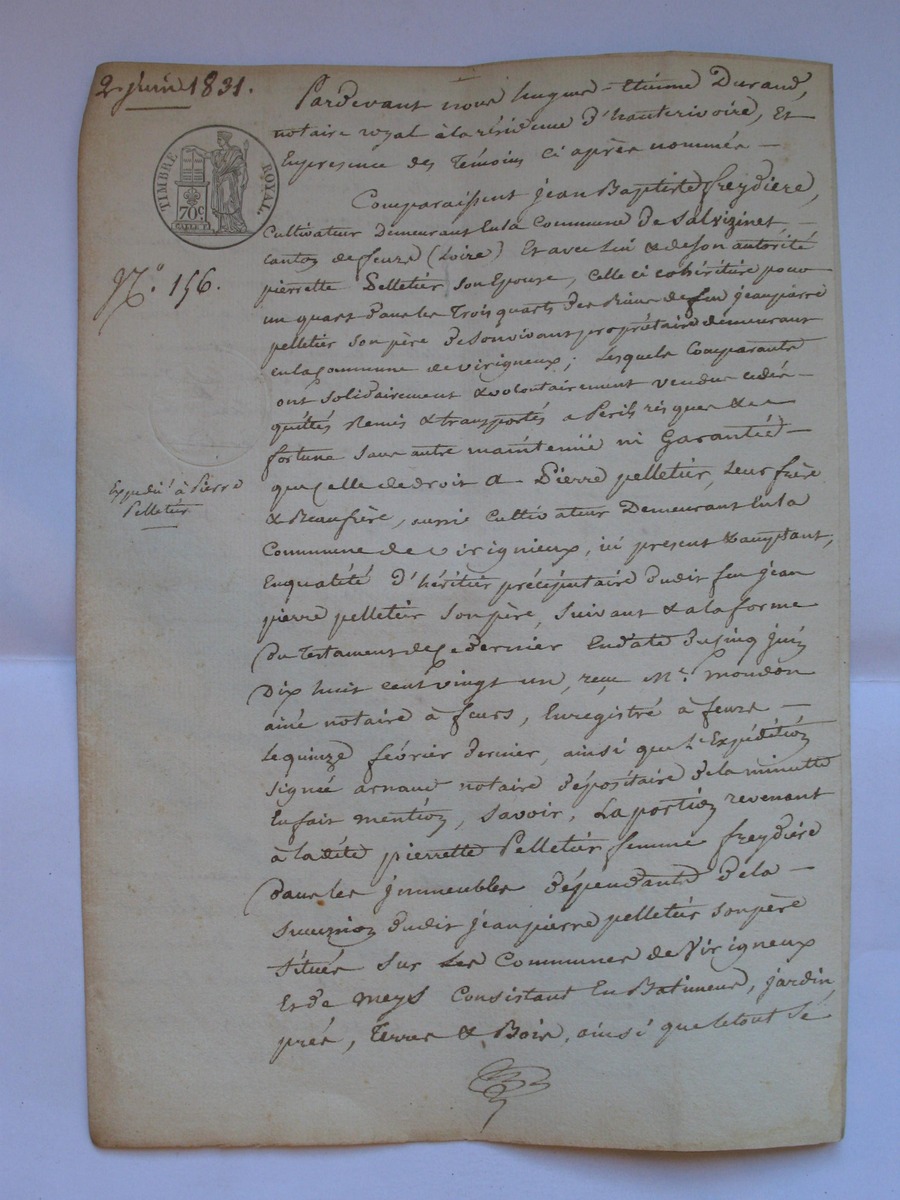 2 juin 1831.
TIMBRE ROYAL
70c
N.o 156.
Expedié à Pierre
Pelletier
Pardevant nous hugues = Etienne Durand,
notaire royal à la résidence d'hauterivoire, Et
En presence des Temoins ci après nommés —
Comparaissent jean Baptiste freydiere,
Cultivateur Demeurant En la commune De Salvizinet, —
canton de feurs (Loire) Et avec lui & de son autorité
pierrette Pelletier son Epouse, celle ci cohéritiere pour
un quart dans les Trois quarts des Biens de feu jean pierre
pelletier son père de son vivant propriétaire demeurant
en la Commune de virigneux; Lesquels Comparants
ont solidairement & volontairement vendus cedés —
quittés Remis & transportés a Perils risques & —
fortune sans autre maintenue ni Garantie —
que celle de droit a Pierre pelletier, Leur frère
& Beaufrère, aussi Cultivateur Demeurant En la
Commune de virignieux, ici present & acceptant,
En qualité d'héritier précipuitaire dudit feu jean
pierre pelletier son père, suivant & a la forme
Du Testament de ce dernier En date du cinq juin
Dix huit cent vingt un, reçu Me. mondon
ainé notaire à feurs, Enregistré à feurs —
Le quinze février dernier, ainsi que l'Expédition
signée arnaud notaire dépositaire de la minutte
En fait mention, Savoir, La portion revenant
à la dite pierrette Pelletier femme freydière
Dans les jmmeubles dépendants de la —
Succession dudit jean pierre pelletier son père
situés sur Les Communes de Virigneux
Et de Meys Consistant En Batiments, jardin,
prés, Terres & Bois, ainsi que le tout se